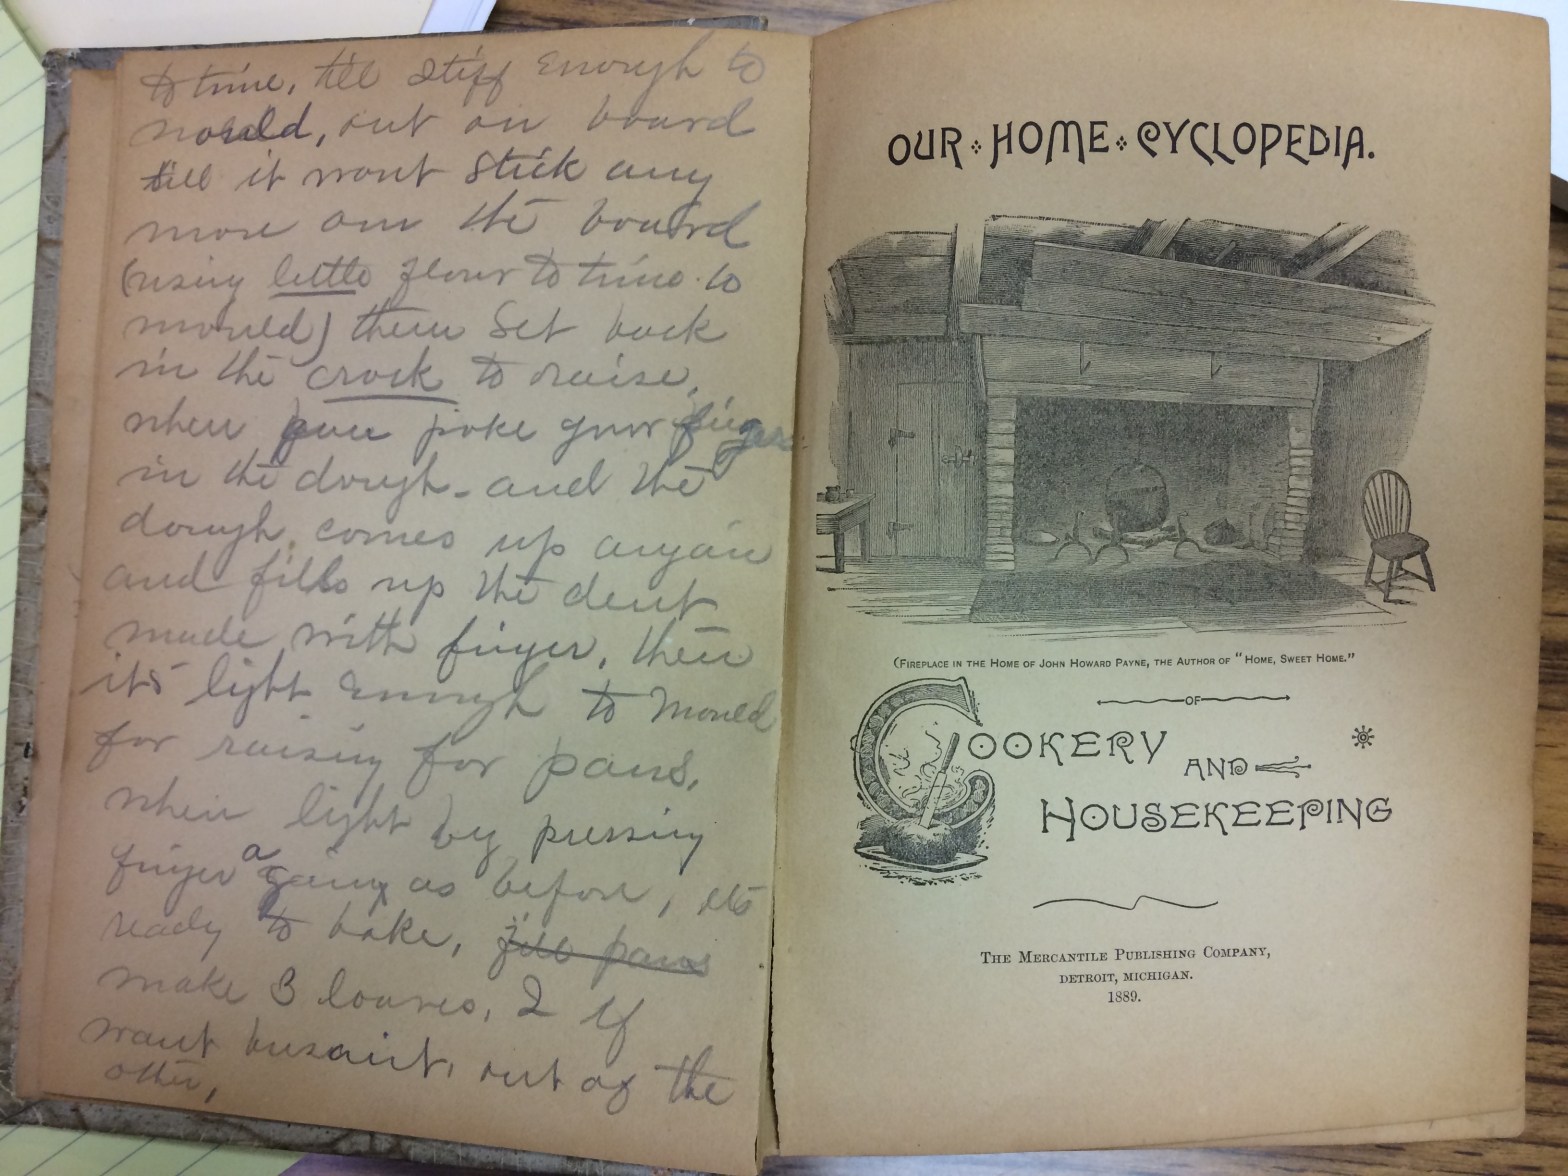 to time, till stiff Enough to
mould, out on board
till it wont stick any
more ann the board
(using little flour to time to
mould) then Set back
in the crock to raise,
when you poke your finger
in the dough - and the
dough, comes up anyain
and fills up the dent
made, with finger, then
its light Enough to Mould
for raising for pans,
when light by pressing
finger a gainx as before, its
ready to bake,
make 3 loaves, 2 if
want busaint, out of the
other,
OUR HOME CYCLOPEDIA.
(FIREPLACE IN THE HOME OF JOHN HOWARD PAYNE, THE AUTHOR OF "HOME, SWEET HOME."
OF
COOKERY AND
HOUSEKEEPING
THE MERCANTILE PUBLISHING COMPANY,
DETROIT, MICHIGAN.
1889.